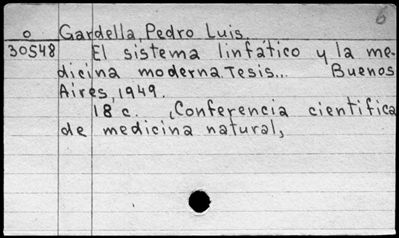 6
o Gardella, Pedro Luis.
30548 El sistema linfático y la me-
dicina moderna. Tesis... Buenos
Aires, 1949.
18 c. (Conferencia cientifica
de medicina natural,